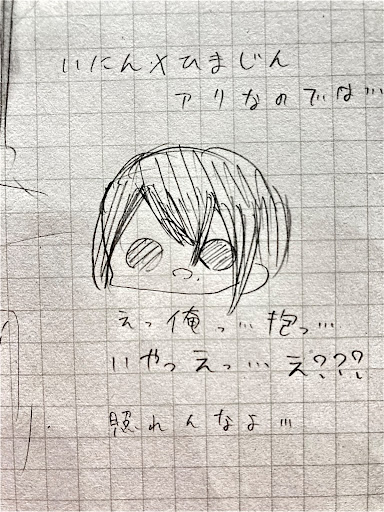 いにん×ひまじん
アリなのでは…
えっ俺っ…抱っ…
いやっえっ…え???
照れんなよ…